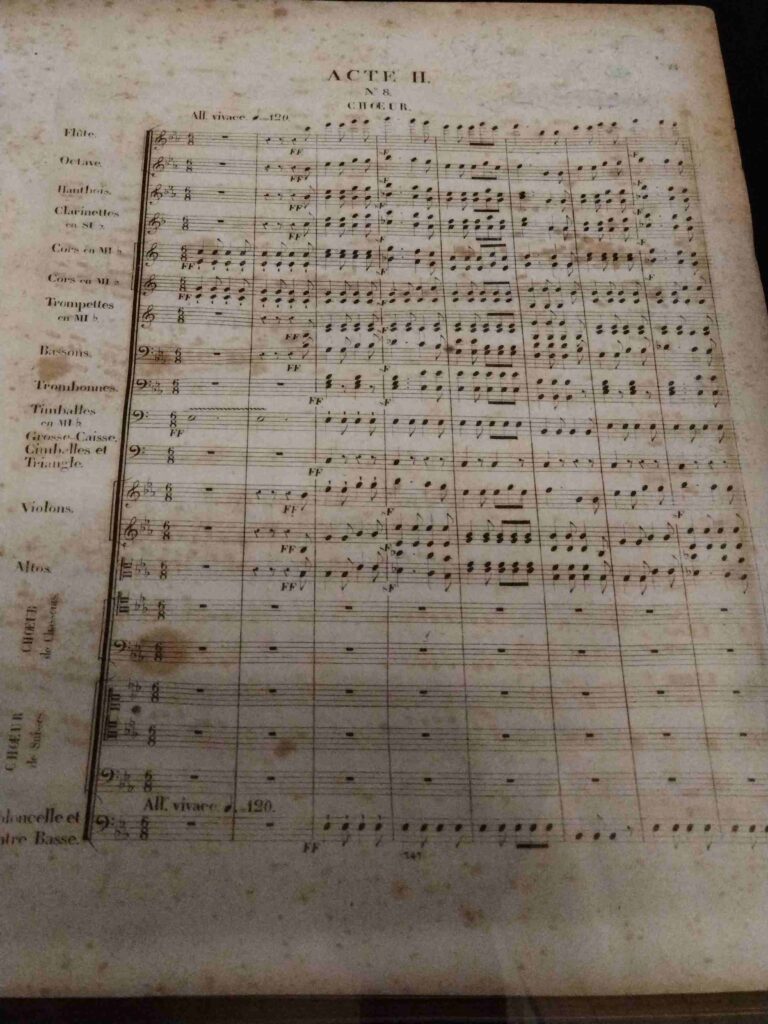 ACTE II.
N° 8.
CHŒUR.
All. vivace ♩. = 120.
Flûte.
Octave.
Hautbois.
Clarinettes
en SI ♭
Cors en MI ♭
Cors en MI ♭
Trompettes
en MI ♭
Bassons.
Trombonnes.
Timballes
en MI ♭
Grosse-Caisse.
Cimballes et
Triangle.
Violons.
Altos.
CHŒUR
de Chasseurs.
CHŒUR
de Suisses.
All. vivace ♩. = 120.
oloncelle et
ntre Basse.
FF